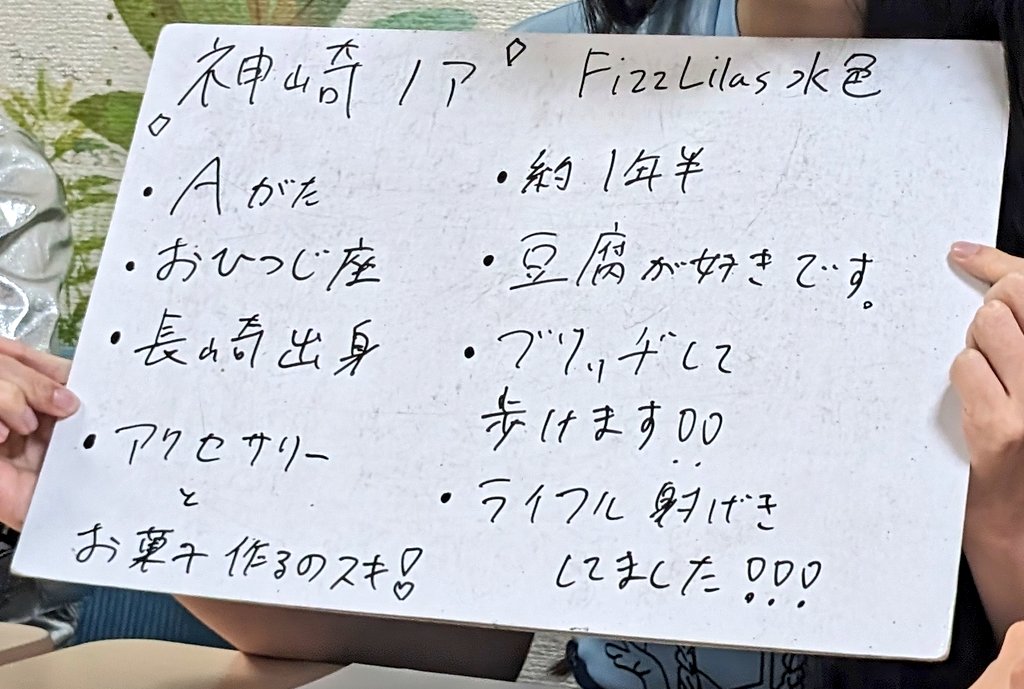 神崎ノア FizzLilas 水色
・Aがた
・おひつじ座
・長崎出身
・アクセサリー
と
お菓子作るのスキ!
・約1年半
・豆腐が好きです。
・ブリッヂして
歩けます!!
・ライフル射げき
してました!!!